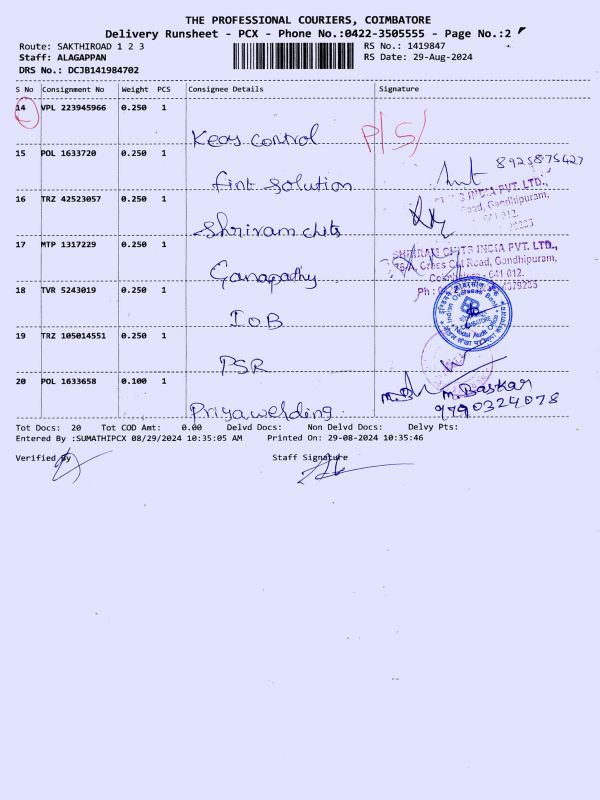 THE PROFESSIONAL COURIERS, COIMBATORE
Delivery Runsheet - PCX - Phone No.:0422-3505555 - Page No.:2
Route: SAKTHIROAD 1 2 3
RS No.: 1419847
Staff: ALAGAPPAN
RS Date: 29-Aug-2024
DRS No.: DCJB141984702
S No Consignment No Weight PCS Consignee Details Signature
14 VPL 223945966 0.250 1
Keays control P/S/
15 POL 1633720 0.250 1
8925875427
fint solution
INDIA PVT. LTD.,
Road, Gandhipuram,
641 012.
16 TRZ 42523057 0.250 1
Shriram chits
17 MTP 1317229 0.250 1
SHRIRAM CHITS INDIA PVT. LTD.,
Cross Cut Road, Gandhipuram,
Coimbatore - 641 012.
Ganapadhy
18 TVR 5243019 0.250 1
Indian Overseas Bank
IOB
19 TRZ 105014551 0.250 1
PSR
20 POL 1633658 0.100 1
M.Baskar
9790324078
Priya welding
Tot Docs: 20 Tot COD Amt: 0.00 Delvd Docs: Non Delvd Docs: Delvy Pts:
Entered By :SUMATHIPCX 08/29/2024 10:35:05 AM Printed On: 29-08-2024 10:35:46
Verified By Staff Signature